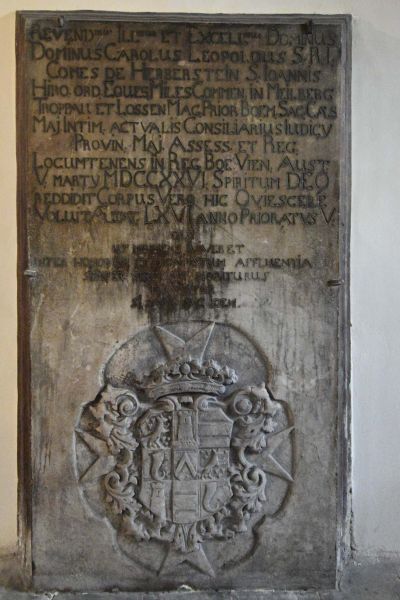 REVEND^mus ILL^mus ET EXCELL^mus DOMINUS
DOMINUS CAROLUS LEOPOLDUS S.R.I.
COMES DE HERBERSTEIN S. IOANNIS
HIRO. ORD. EQUES MILES COMMEN. IN MEILBERG
TROPPAU ET LOSSEN MAG. PRIOR BOEM. SAC. CÆS
MAJ. INTIM. ACTVALIS CONSILIARIUS IUDICY
PROVIN. MAJ. ASSESS. ET REG.
LOCUMTENENS IN REG. BOE. VIEN. AUST
V. MARTY MDCCXXVI. SPIRITUM DEO
REDDIDIT CORPUS VERO HIC QUIESCERE
VOLUIT ÆTAT. LXVI ANNO PRIORATUS V.
ET
INTER HONORES ET AFFLUENTIA
MORITURUS